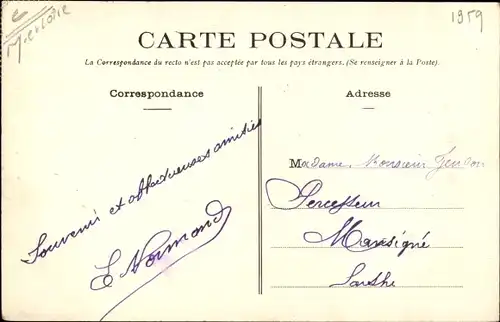 M. et Loire
1959
CARTE POSTALE
La Correspondance du recto n'est pas acceptée par tous les pays étrangers. (Se renseigner à la Poste).
Correspondance
Adresse
Souvenir et affectueuses amitiés
E Normand
Madame Monsieur
Percepteur
Mansigné
Sarthe